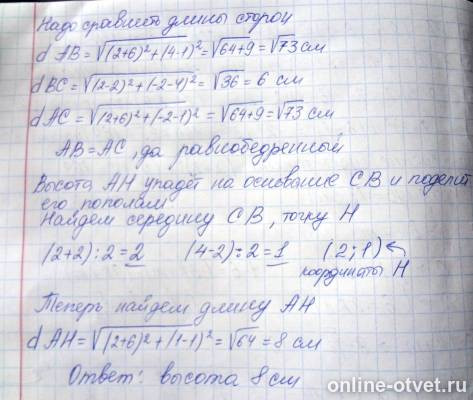 Надо сравнить длины сторон
d AB = √(2+6)² + (4-1)² = √64+9 = √73 см
d BC = √(2-2)² + (-2-4)² = √36 = 6 см
d AC = √(2+6)² + (-2-1)² = √64+9 = √73 см
AB = AC, да равнобедренный
Высота AH упадёт на основание CB и поделит
его пополам
Найдем середину CB, точку H
(2+2) : 2 = 2 (4-2) : 2 = 1 (2; 1)
координаты H
Теперь найдем длину AH
d AH = √(2+6)² + (1-1)² = √64 = 8 см
Ответ: высота 8 см
online-otvet.ru